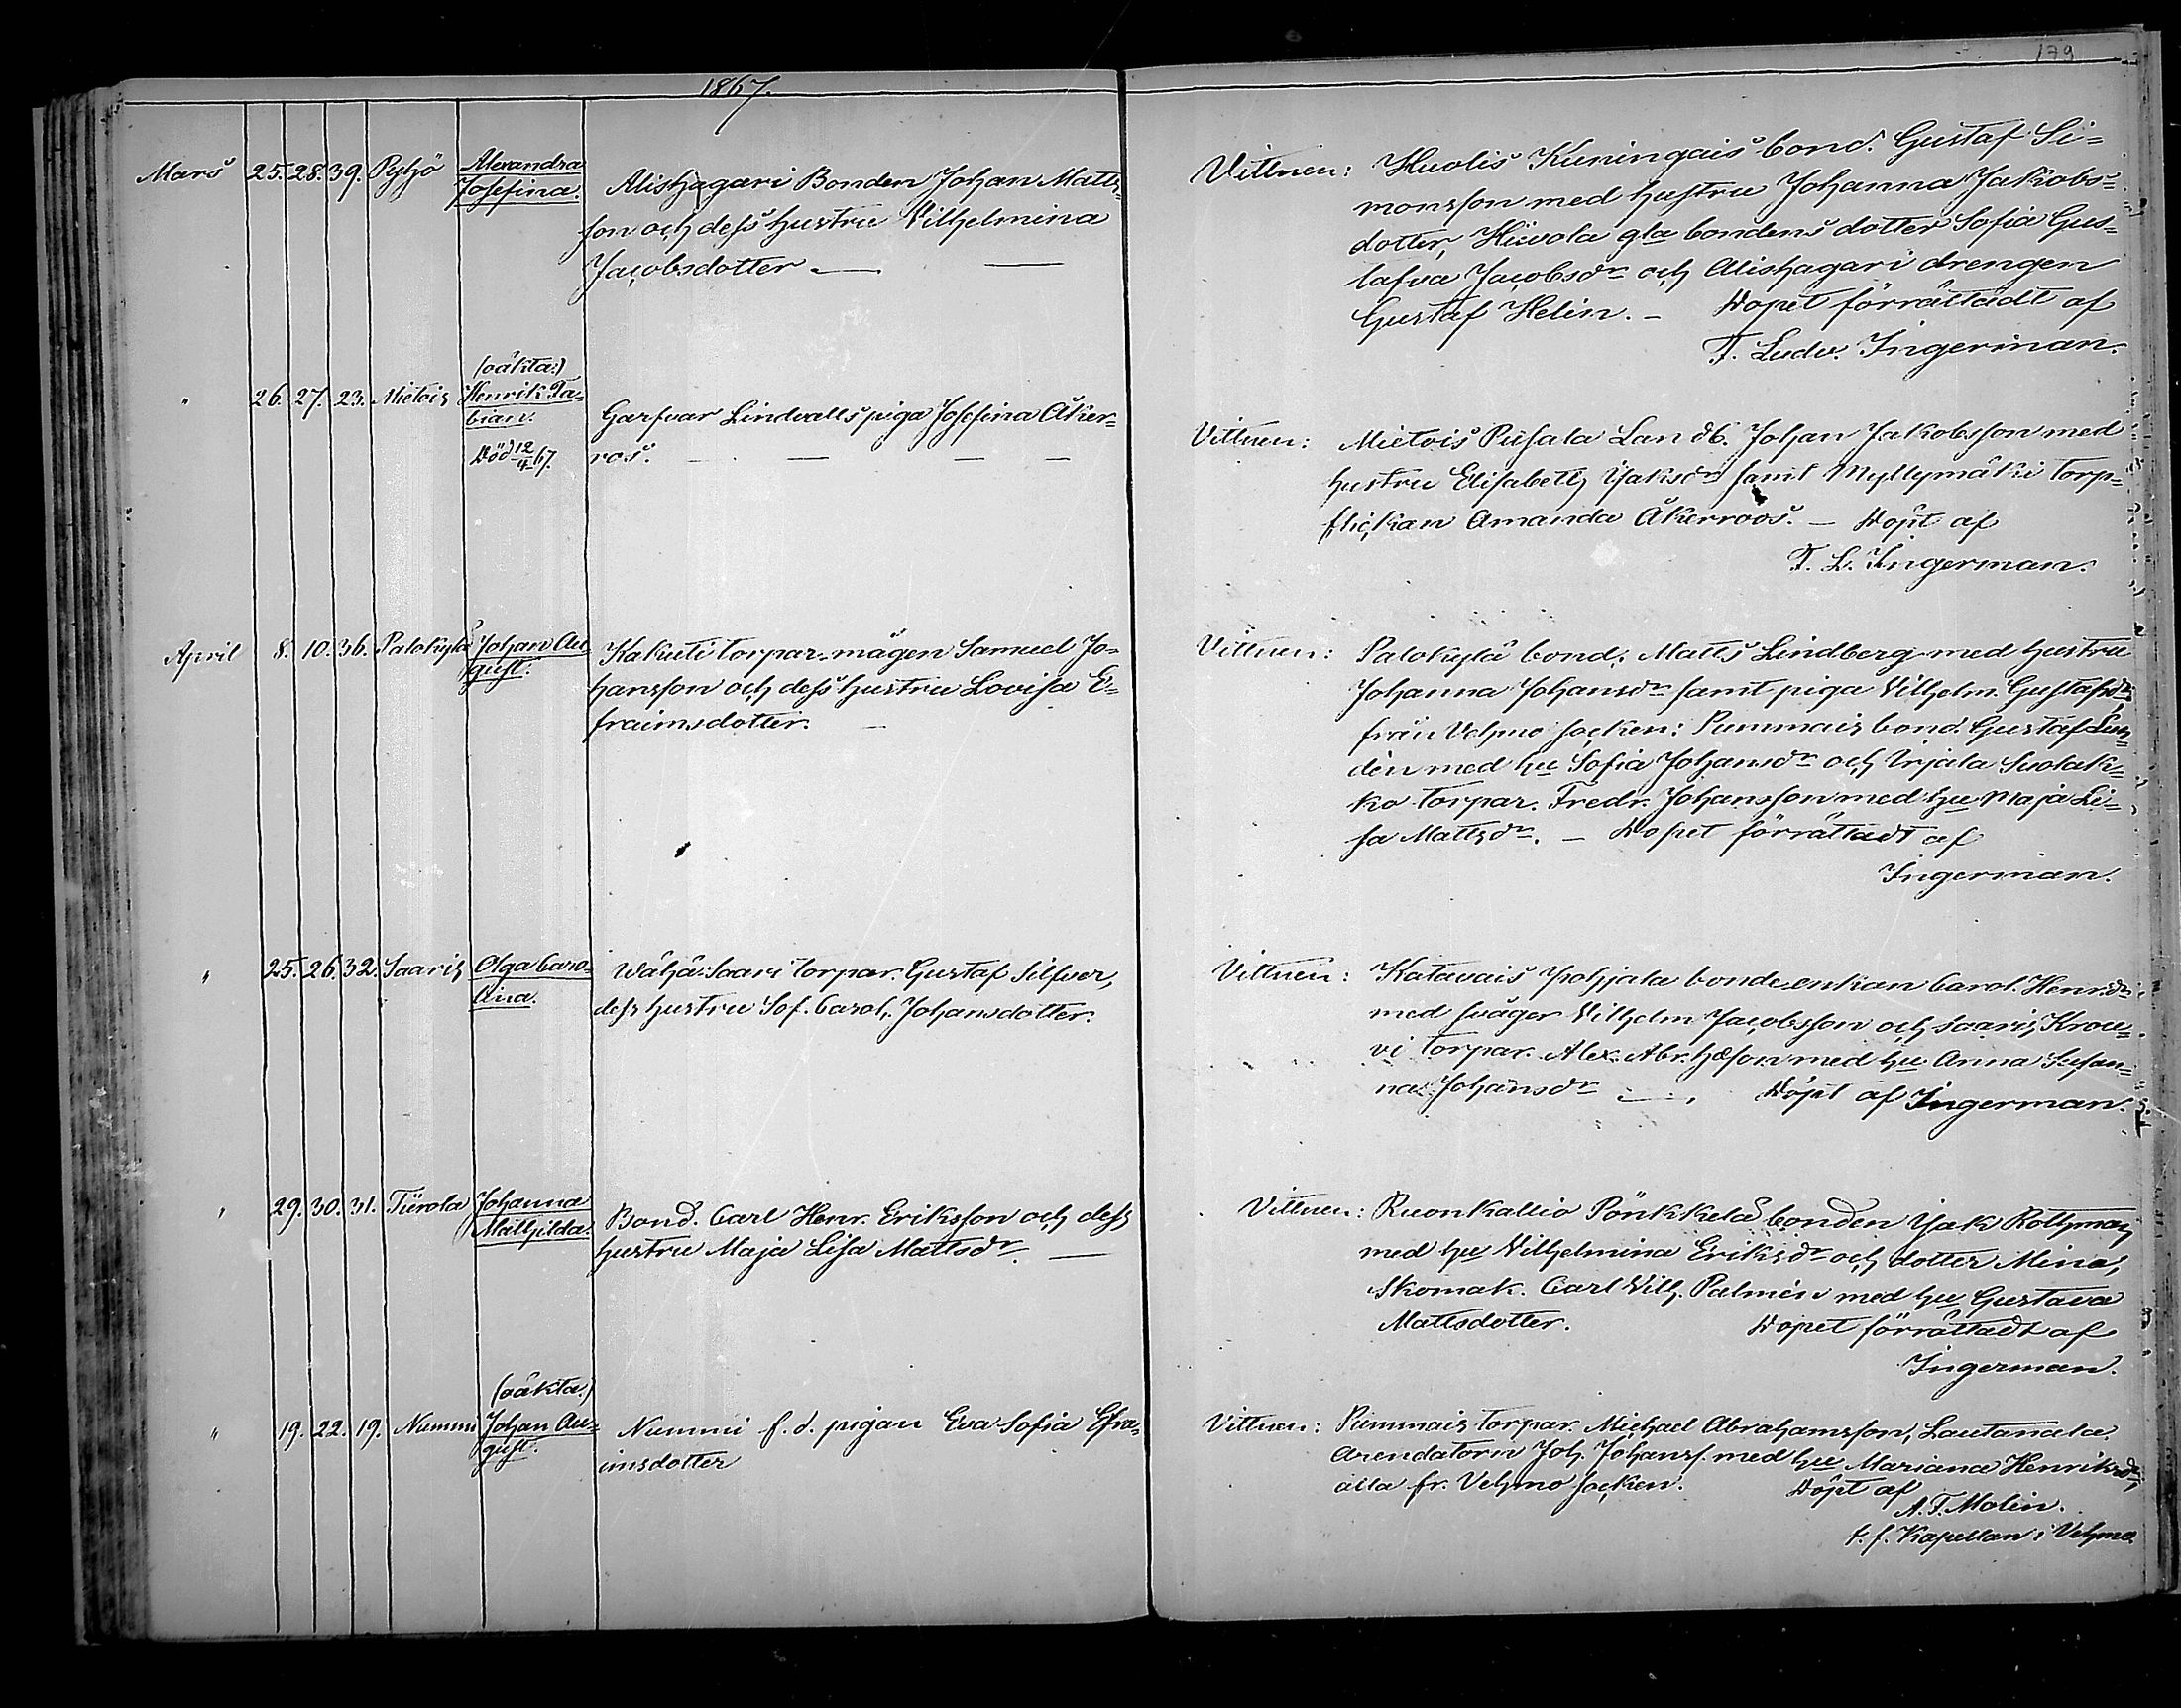 179
1867.
Mars 25. 28. 39. Pyhjö Alexandra
Josefina.
Alishagari Bonden Johan Matts-
son och dess hustru Vilhelmina
Jacobsdotter —
Vittnen: Huolis Kuningais bond. Gustaf Si-
monsson med hustru Johanna Jakobs-
dotter, Hiivola gla bondens dotter Sofia Gus-
tafva Jacobsdr och Alishagari drengen
Gustaf Helin. — Dopet förrättadt af
F. Ludv. Ingerman.
(oäkta:)
" 26. 27. 23. Mietois Henrik Fa-
bian.
Död 12/4 67.
Garfvar Lindvalls piga Josefina Åker-
ros. — — — —
Vittnen: Mietois Piisala Landb. Johan Jakobsson med
hustru Elisabeth Isaksdr samt Myllymäki torp-
flickan Amanda Åkerroos. — Döpt af
F. L. Ingerman.
April 8. 10. 36. Palokylä Johan Au-
gust.
Kakuti torpar-mågen Samuel Jo-
hansson och dess hustru Lovisa E-
fraimsdotter. —
Vittnen: Palokylä bond. Matts Lindberg med hustru
Johanna Johansdr samt piga Vilhelm. Gustafsdr,
från Vehmo socken: Pummais bond. Gustaf Lin-
dén med hu Sofia Johansdr och Irjala Suolak-
ko torpar. Fredr. Johansson med hu Maja Li-
sa Mattsdr. — Dopet förrättadt af
Ingerman.
" 25. 26. 32. Saaris Olga Caro-
lina.
Wähä-Saari torpar. Gustaf Silfver,
dess hustru Sof. Carol. Johansdotter.
Vittnen: Katavais Pohjala bondeenkan Carol. Henr.dr
med svåger Vilhelm Jacobsson och Saaris Krou-
vi torpar. Alex. Abr.hæson med hu Anna Susan-
na Johansdr —. Döpt af Ingerman.
" 29. 30. 31. Tiirola Johanna
Mathilda.
Bond. Carl Henr. Eriksson och dess
hustru Maja Lisa Mattsdr. —
Vittnen: Ruonkallio Pönkkelä bonden Isak Rothman
med hu Vilhelmina Eriksdr och dotter Mina,
Skomak. Carl Vilh. Palmén med hu Gustava
Mattsdotter. Dopet förrättadt af
Ingerman.
(oäkta.)
" 19. 22. 19. Nummi Johan Au-
gust.
Nummi f. d. pigan Eva Sofia Efra-
imsdotter
Vittnen: Pummais torpar. Michael Abrahamsson, Lautanala
Arendatorn Joh. Johanss. med hu Mariana Henriksdr,
alla fr. Vehmo socken. Döpt af
A. F. Molin.
t. f. Kapellan i Vehmo.